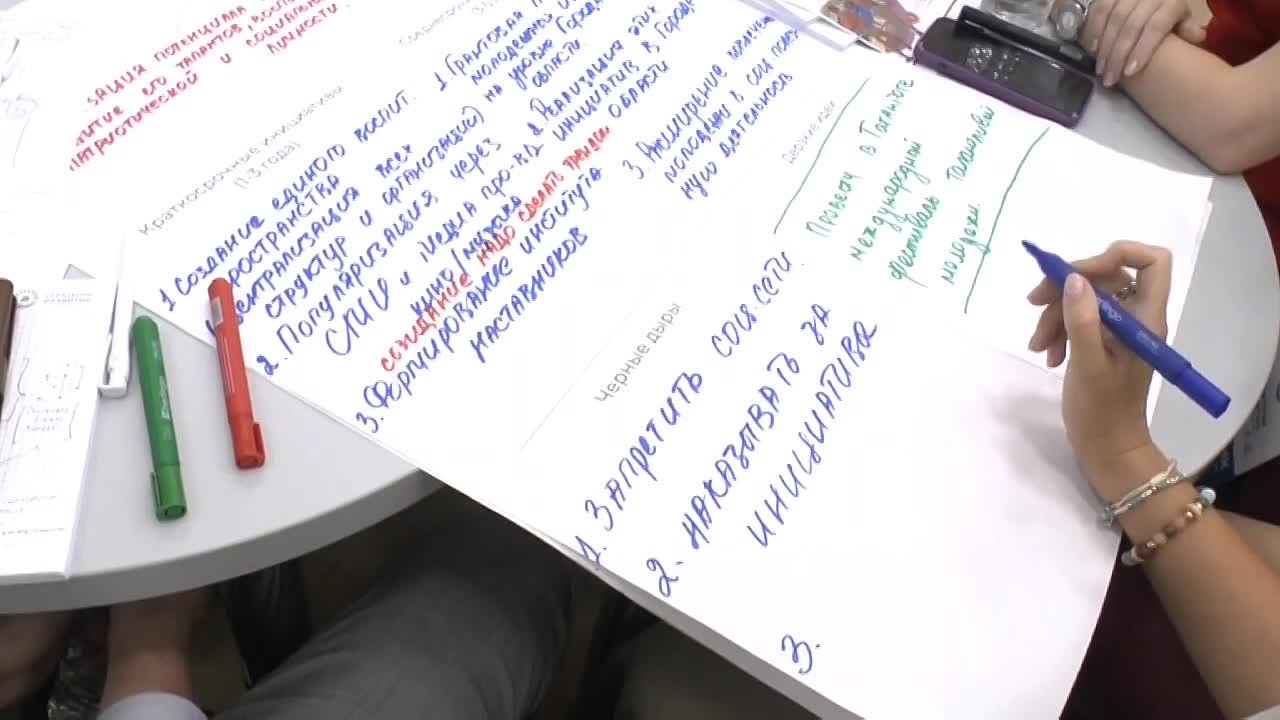 ЗАЦИЯ ПОТЕНЦИАЛА
ИТИЕ ЕГО ТАЛАНТОВ,
ПАТРИОТИЧЕСКОЙ И СОЦИАЛЬНО
ЛИЧНОСТИ.
Краткосрочные инициативы
(1-3 года)
1 СОЗДАНИЕ ЕДИНОГО ВОСПИТ.
ПРОСТРАНСТВА
ЦЕНТРАЛИЗАЦИЯ ВСЕХ
СТРУКТУР И ОРГАНИЗАЦИЙ)
2. ПОПУЛЯРИЗАЦИЯ, ЧЕРЕЗ
СМИ И МЕДИА ПРО-ВО
КИНО/МУЗЫКА
СОЗИДАНИЕ НАДО СДЕЛАТЬ ТРЕНДОМ
3. ФОРМИРОВАНИЕ ИНСТИТУТА
НАСТАВНИКОВ
1 ГРАНТОВАЯ
МОЛОДЕЖНОЙ
УРОВНЕ ГОРОДА
ОБЛАСТИ.
2. РЕАЛИЗАЦИЯ ЭТИХ
ИНИЦИАТИВ В ГОРОДЕ
ОБЛАСТИ
3. РАСШИРЕНИЕ
МОЛОДЕЖИ В СОЦ
НУЮ ДЕЯТЕЛЬНОСТЬ
Черные дыры
1. ЗАПРЕТИТЬ СОЦ. СЕТИ.
2. НАКАЗЫВАТЬ ЗА
ИНИЦИАТИВЫ
3.
Провести в Ташкенте
международный
фестиваль талантливой
молодежи.